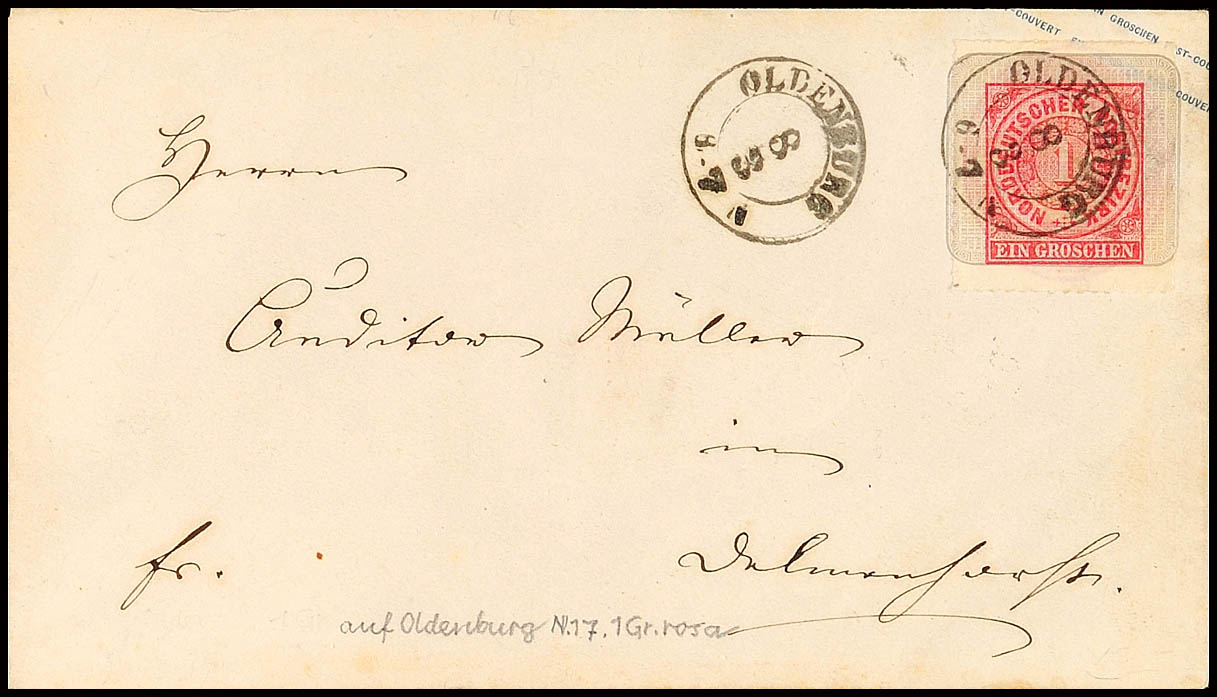 OLDENBURG
8
3
6-7
N
-COUVERT EIN GROSCHEN ST-COU
COUVER
OLDENBURG
8
3
6-7
N
NORDDEUTSCHER POSTBEZIRK
1
EIN GROSCHEN
Herrn
Auditor Müller
in
fr. Delmenhorst.
auf Oldenburg N.17. 1Gr. rosa